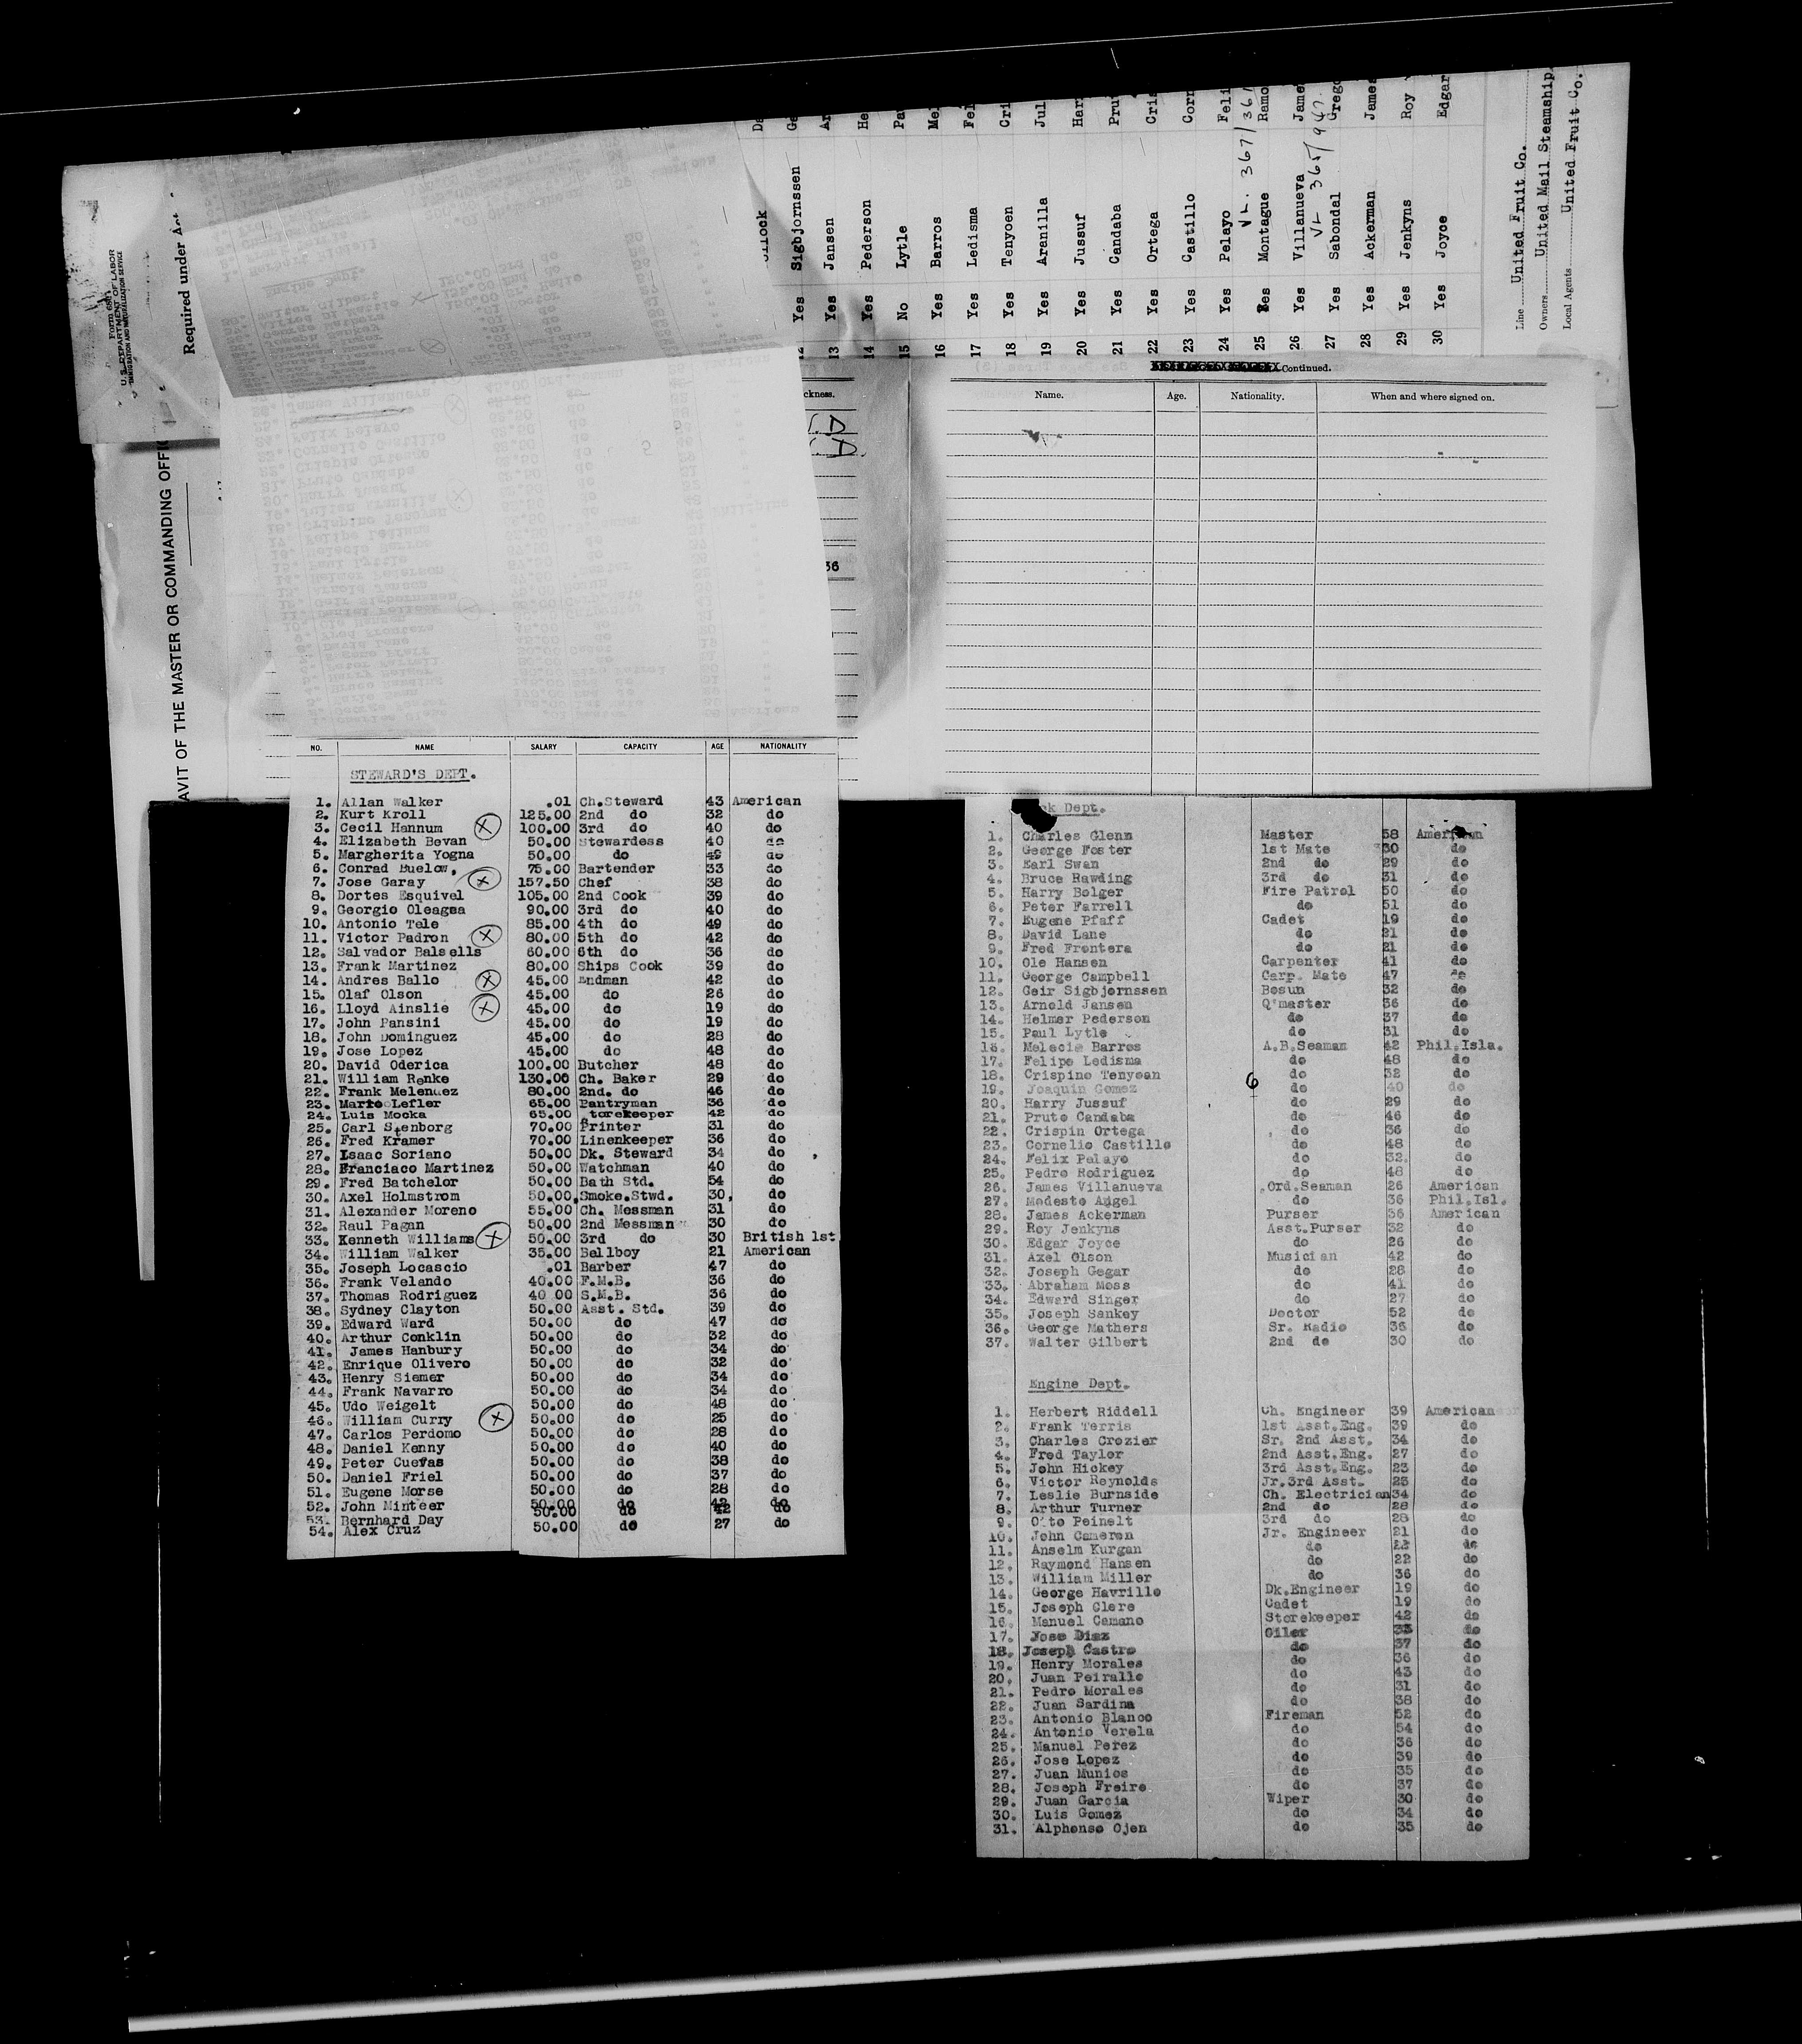 Form 689
U. S. DEPARTMENT OF LABOR
IMMIGRATION AND NATURALIZATION SERVICE
Required under Act
AVIT OF THE MASTER OR COMMANDING OFFIC
Yes Sigbjornssen
13 Yes Jansen
14 Yes Pederson
15 No Lytle
16 Yes Barros
17 Yes Ledisma
18 Yes Tenyoen
19 Yes Aranilla
20 Yes Jussuf
21 Yes Candaba
22 Yes Ortega
23 Yes Castillo
24 Yes Pelayo
25 Yes Montague
26 Yes Villanueva
27 Yes Sabondal
28 Yes Ackerman
29 Yes Jenkyns
30 Yes Joyce Edgar
Line United Fruit Co.
Owners United Mail Steamship
Local Agents United Fruit Co.
ckness.
36
Continued.
Name. Age. Nationality. When and where signed on.
NO. NAME SALARY CAPACITY AGE NATIONALITY
STEWARD'S DEPT.
1. Allan Walker .01 Ch.Steward 43 American
2. Kurt Kroll 125.00 2nd do 32 do
3. Cecil Hannum 100.00 3rd do 40 do
4. Elizabeth Bevan 50.00 Stewardess 40 do
5. Margherita Yogna 50.00 do 49 do
6. Conrad Buelow, 75.00 Bartender 33 do
7. Jose Garay 157.50 Chef 38 do
8. Dortes Esquivel 105.00 2nd Cook 39 do
9. Georgio Oleagea 90.00 3rd do 40 do
10. Antonio Tele 85.00 4th do 49 do
11. Victor Padron 80.00 5th do 42 do
12. Salvador Balsells 60.00 6th do 36 do
13. Frank Martinez 80.00 Ships Cook 39 do
14. Andres Ballo 45.00 Endman 42 do
15. Olaf Olson 45.00 do 26 do
16. Lloyd Ainslie 45.00 do 19 do
17. John Pansini 45.00 do 19 do
18. John Dominguez 45.00 do 28 do
19. Jose Lopez 45.00 do 48 do
20. David Oderica 100.00 Butcher 48 do
21. William Renke 130.00 Ch. Baker 29 do
22. Frank Melendez 80.00 2nd. do 46 do
23. Mario Lefler 65.00 Pantryman 36 do
24. Luis Mocka 65.00 torekeeper 42 do
25. Carl Stenborg 70.00 Printer 31 do
26. Fred Kramer 70.00 Linenkeeper 36 do
27. Isaac Soriano 50.00 Dk. Steward 34 do
28. Franciaco Martinez 50.00 Watchman 40 do
29. Fred Batchelor 50.00 Bath Std. 54 do
30. Axel Holmstrom 50.00 Smoke.Stwd. 30, do
31. Alexander Moreno 55.00 Ch. Messman 31 do
32. Raul Pagan 50.00 2nd Messman 30 do
33. Kenneth Williams 50.00 3rd do 30 British 1st
34. William Walker 35.00 Bellboy 21 American
35. Joseph Locascio .01 Barber 47 do
36. Frank Velando 40.00 F.M.B. 36 do
37. Thomas Rodriguez 40 00 S.M.B. 36 do
38. Sydney Clayton 50.00 Asst. Std. 39 do
39. Edward Ward 50.00 do 47 do
40. Arthur Conklin 50.00 do 32 do
41. James Hanbury 50.00 do 34 do
42. Enrique Olivero 50.00 do 32 do
43. Henry Siemer 50.00 do 34 do
44. Frank Navarro 50.00 do 34 do
45. Udo Weigelt 50.00 do 48 do
46. William Curry 50.00 do 25 do
47. Carlos Perdomo 50.00 do 28 do
48. Daniel Kenny 50.00 do 40 do
49. Peter Cuevas 50.00 do 38 do
50. Daniel Friel 50.00 do 37 do
51. Eugene Morse 50.00 do 28 do
52. John Minteer 50.00 do 42 do
53. Bernhard Day 50.00 42 do
54. Alex Cruz 50.00 do 27 do
ck Dept.
1. Charles Glenn Master 58 American
2. George Foster 1st Mate 30 do
3. Earl Swan 2nd do 29 do
4. Bruce Rawding 3rd do 31 do
5. Harry Bolger Fire Patrol 50 do
6. Peter Farrell do 51 do
7. Eugene Pfaff Cadet 19 do
8. David Lane do 21 do
9. Fred Frontera do 21 do
10. Ole Hansen Carpenter 41 do
11. George Campbell Carp. Mate 47 do
12. Geir Sigbjornssen Bosun 32 do
13. Arnold Jansen Q'master 36 do
14. Helmer Pederson do 37 do
15. Paul Lytle do 31 do
16. Melecio Barros A.B.Seaman 42 Phil.Isla.
17. Felipe Ledisma do 48 do
18. Crispino Tenyoan do 32 do
19. Joaquin Gomez do 40 do
20. Harry Jussuf do 29 do
21. Pruto Candaba do 46 do
22. Crispin Ortega do 36 do
23. Cornelio Castillo do 48 do
24. Felix Pelayo do 32. do
25. Pedro Rodriguez do 48 do
26. James Villanueva Ord.Seaman 26 American
27. Modesto Angel do 36 Phil.Isl.
28. James Ackerman Purser 36 American
29. Roy Jenkyns Asst.Purser 32 do
30. Edgar Joyce do 26 do
31. Axel Olson Musician 42 do
32. Joseph Gegar do 28 do
33. Abraham Moss do 41 do
34. Edward Singer do 27 do
35. Joseph Sankey Doctor 52 do
36. George Mathers Sr. Radio 36 do
37. Walter Gilbert 2nd do 30 do
Engine Dept.
1. Herbert Riddell Ch. Engineer 39 American
2. Frank Terris 1st Asst.Eng. 39 do
3. Charles Crozier Sr. 2nd Asst. 34 do
4. Fred Taylor 2nd Asst.Eng. 27 do
5. John Hickey 3rd Asst.Eng. 23 do
6. Victor Reynolds Jr.3rd Asst. 25 do
7. Leslie Burnside Ch. Electrician 34 do
8. Arthur Turner 2nd do 28 do
9. Otto Peinelt 3rd do 28 do
10. John Cameron Jr. Engineer 21 do
11. Anselm Kurgan do 22 do
12. Raymond Hansen do 22 do
13. William Miller do 36 do
14. George Havrillo Dk.Engineer 19 do
15. Joseph Clere Cadet 19 do
16. Manuel Camano Storekeeper 42 do
17. Jose Diaz Oiler 33 do
18. Joseph Castro do 37 do
19. Henry Morales do 36 do
20. Juan Peirallo do 43 do
21. Pedro Morales do 31 do
22. Juan Sardina do 38 do
23. Antonio Blanco Fireman 52 do
24. Antonio Verela do 54 do
25. Manuel Perez do 36 do
26. Jose Lopez do 39 do
27. Juan Munios do 35 do
28. Joseph Freire do 37 do
29. Juan Garcia Wiper 30 do
30. Luis Gomez do 34 do
31. Alphonso Ojen do 35 do